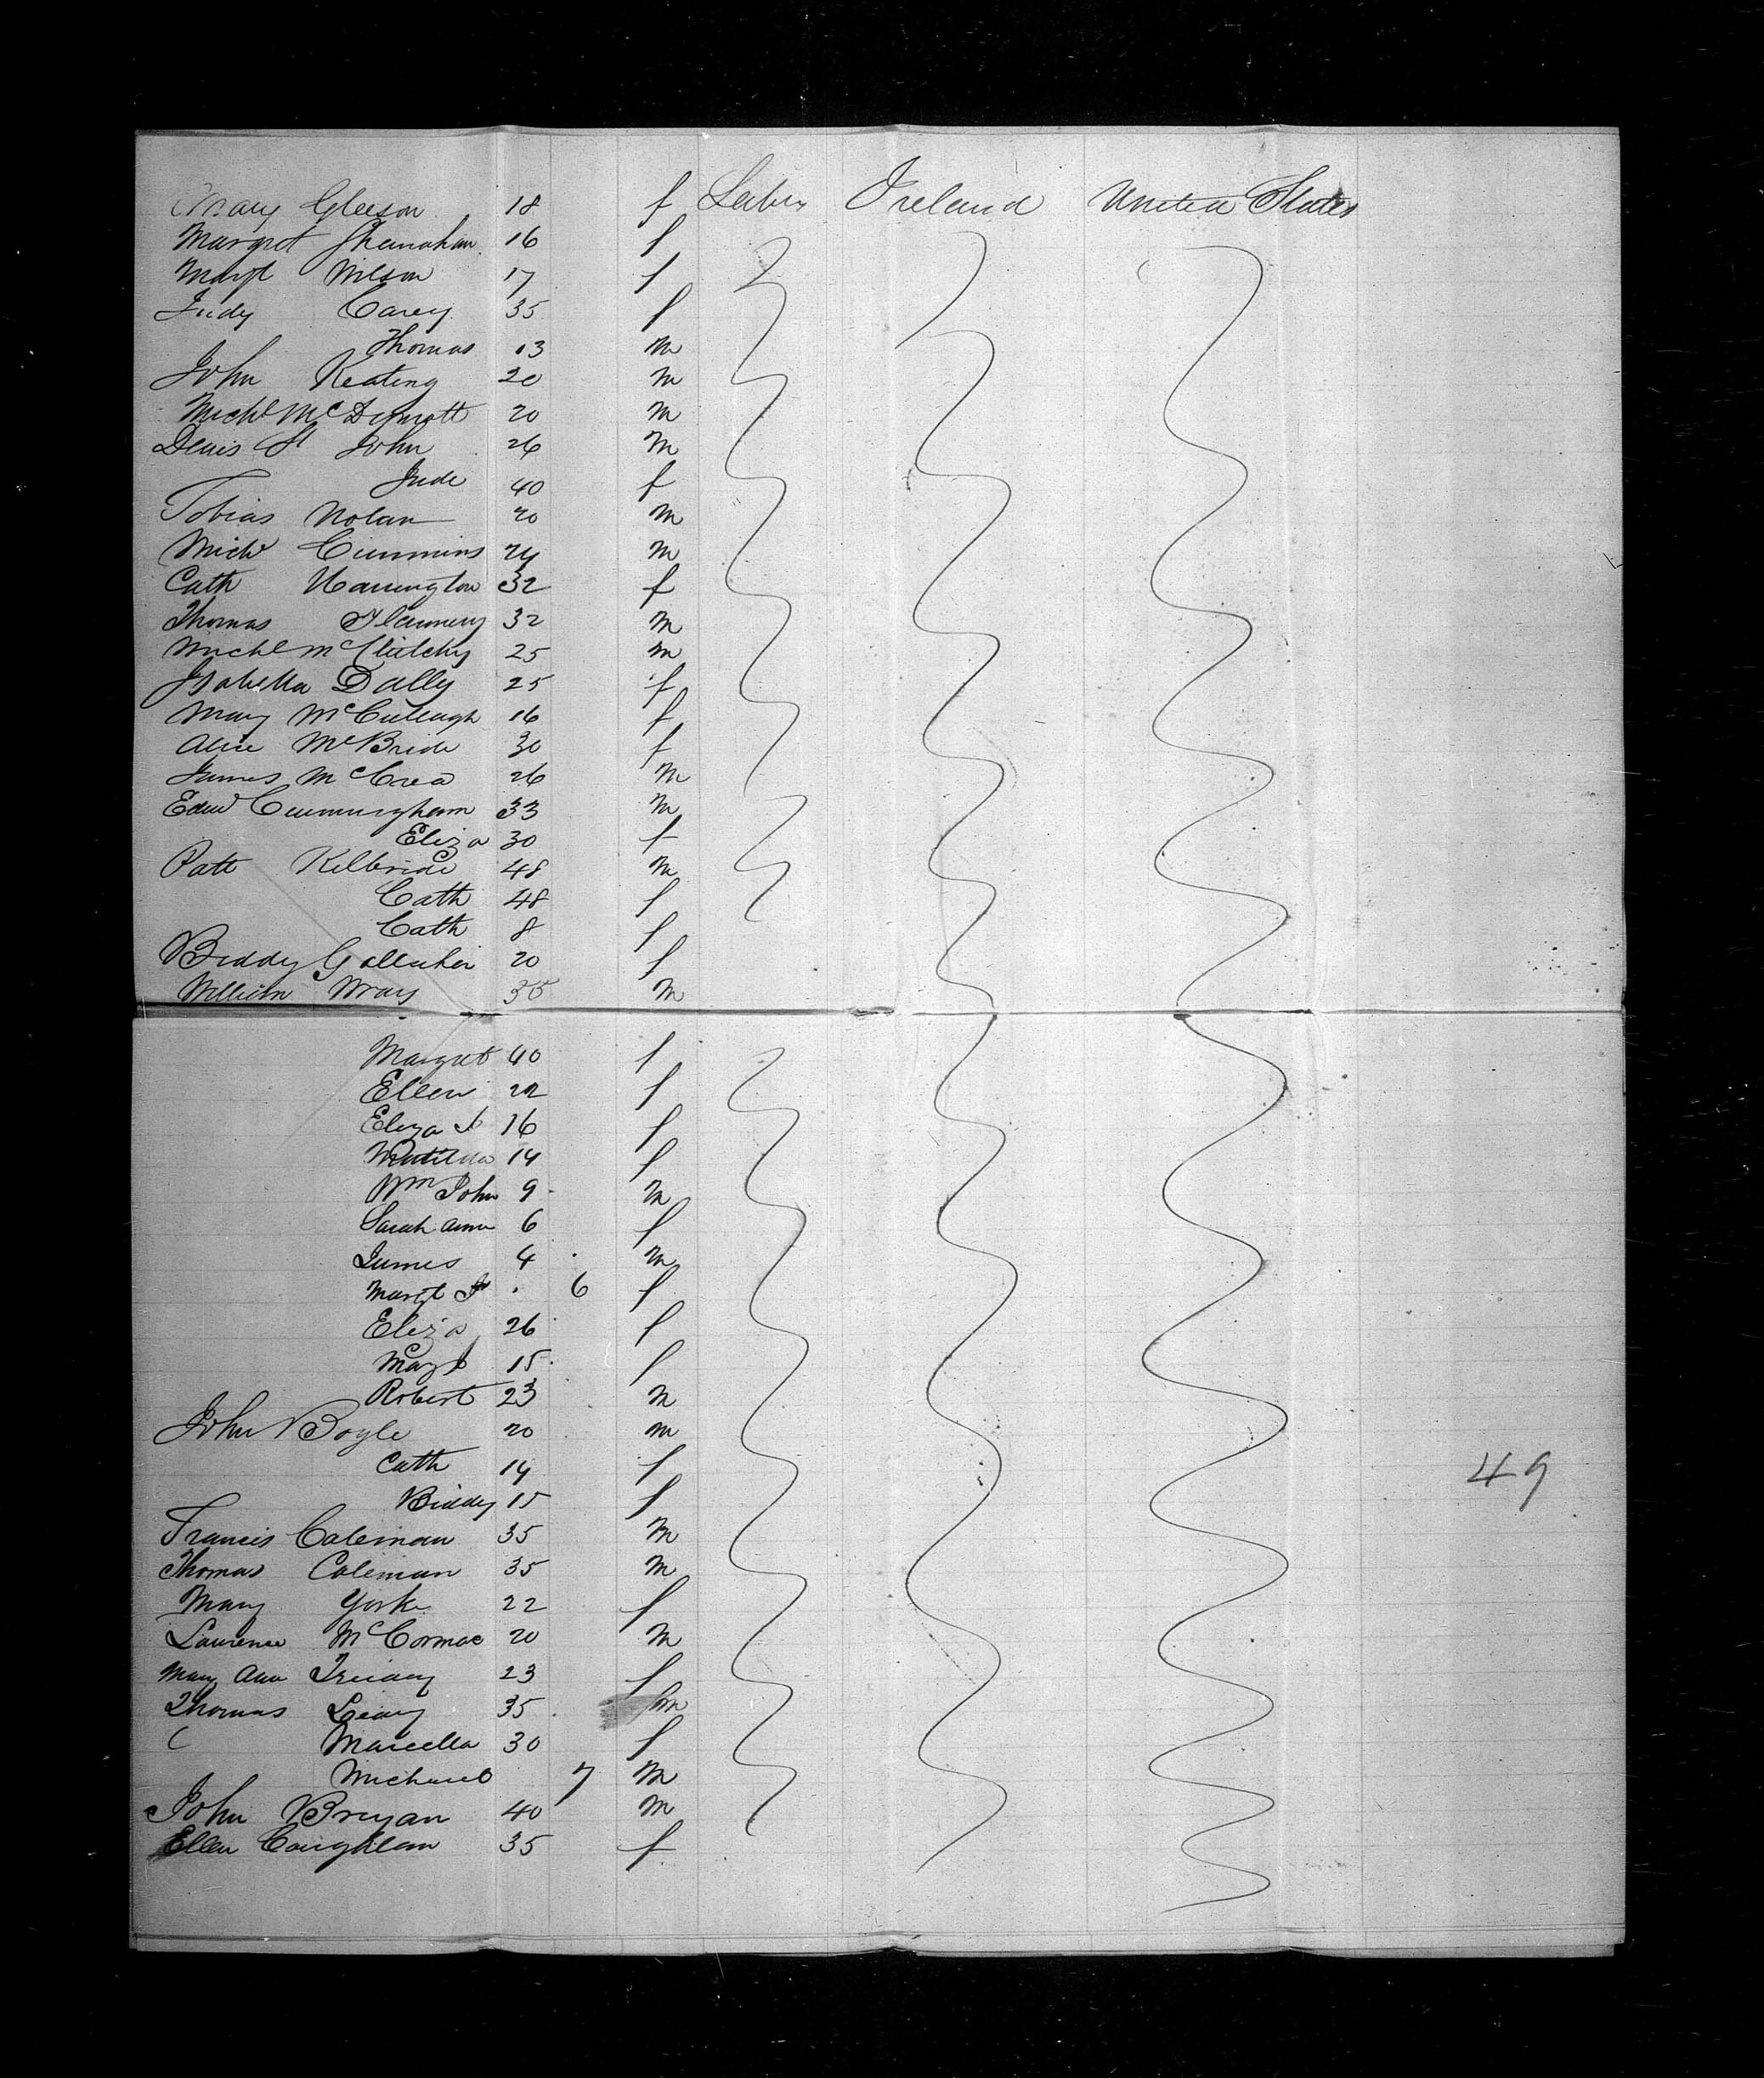 Mary Gleeson 18 f Labr Ireland United States
Margret Shanahan 16 f
Margt Wilson 17 f
Judy Carey 35 f
Thomas 13 m
John Keating 20 m
Michl McDermott 20 m
Denis St John 26 m
Jude 40 f
Tobias Nolan 20 m
Michl Cummins 24 m
Cath Harrington 32 f
Thomas Flannery 32 m
Michl McClutchy 25 m
Isabella Dally 25 f
Mary McCullagh 16 f
Alice McBride 30 f
James McCrea 26 m
Edwd Cunningham 33 m
Eliza 30 f
Patt Kilbride 48 m
Cath 48 f
Cath 8 f
Biddy Gallaher 20 f
William Wray 35 m
Margret 40 f
Ellen 22 f
Eliza J 16 f
Matilda 14 f
Wm John 9 m
Sarah Ann 6 f
James 4 m
Margt J 6 f
Eliza 26 f
Margt 15 f
Robert 23 m
John Boyle 20 m
Cath 14 f
Biddy 15 f
Francis Coleman 35 m
Thomas Coleman 35 m
Mary York 22 f
Laurence McCormac 20 m
Mary Ann 23 f
Thomas Leary 35 m
Marcella 30 f
Michael 7 m
John Bryan 40 m
Ellen Coughlan 35 f
49